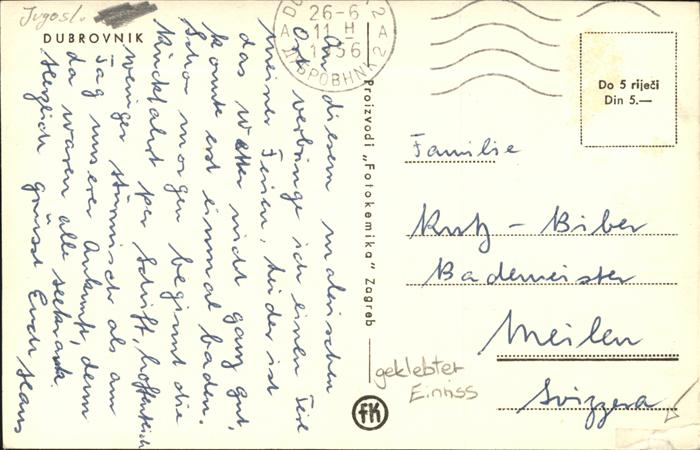 Jugosl.
DUBROVNIK
26-6
11 H
1956
ДУБРОВНИК 2
An diesem malerischen
Ort verbringe ich einen Teil
meiner Ferien, leider ist
das Wetter nicht ganz gut,
konnte erst einmal baden.
Schon morgen beginnt die
Rückfahrt per Schiff, hoffentlich
weniger stürmisch als am
Tag unserer Ankunft, denn
da waren alle seekrank.
Herzlich grüsst Euch Hans
Proizvodi „Fotokemika“ Zagreb
fK
Do 5 riječi
Din 5.—
Familie
Kutz - Biber
Bademeister
Meilen
Svizzera
geklebter
Einriss